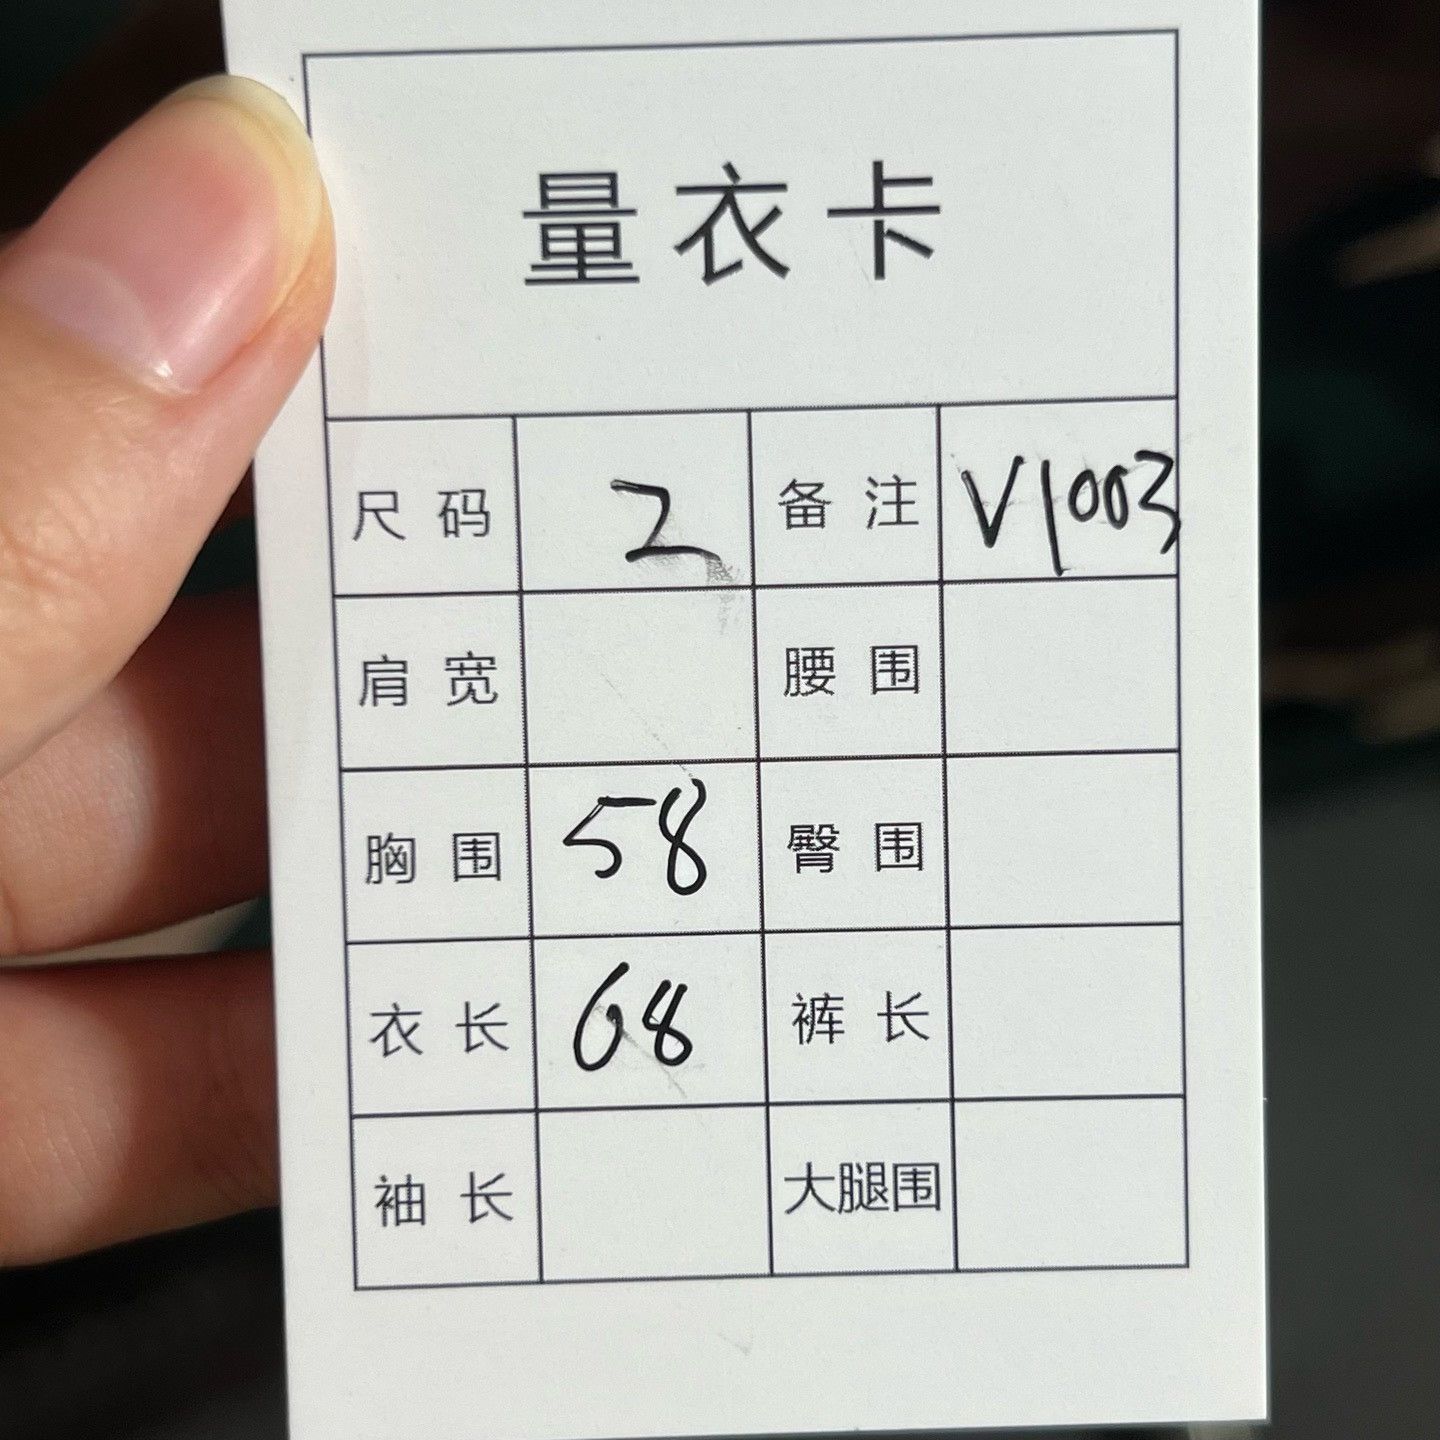 量衣卡
尺码 2 备注 V1003
肩宽 腰围
胸围 58 臀围
衣长 68 裤长
袖长 大腿围